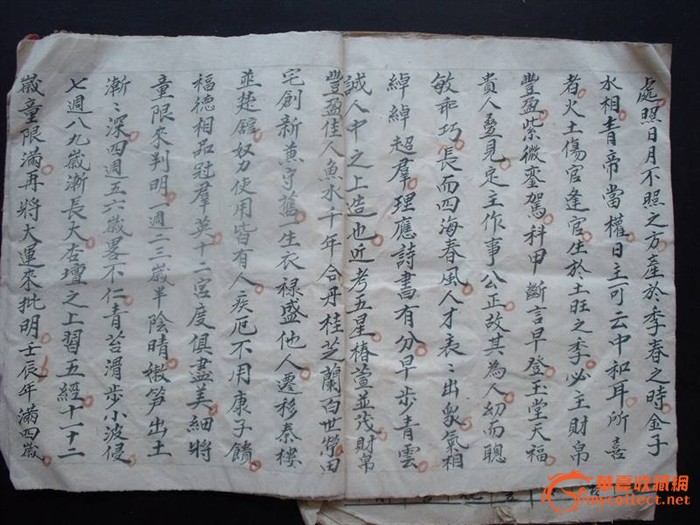 處照日月不照之方產於季春之時金子
水相青帝當權日主可云中和耳所喜
者火土傷官逢官生於土旺之季必主財帛
豐盈紫微鑾駕科甲斷言早登玉堂天福
貴人疊見定主作事公正故其為人幼而聰
敏乖巧長而四海春風人才表〻出眾氣相
綽綽超羣理應詩書有分早步青雲
誠人中之上造也近考五星椿萱並茂財帛
豐盈佳人魚水千年合丹桂芝蘭百世榮田
宅創新黃守舊一生衣祿盛他人遷移秦樓
並楚舘奴力使用皆有人疾厄不用康子饋
福德相品冠羣英十二宮度俱盡美細將
童限來判明一週二三歲半陰晴嫩笋出土
漸〻深四週五六歲畧不仁青苔滑步小波侵
七週八九歲漸長大杏壇之上習五經十一十二
歲童限滿再將大運來批明壬辰年滿四歲
華夏收藏網
mycollect.net